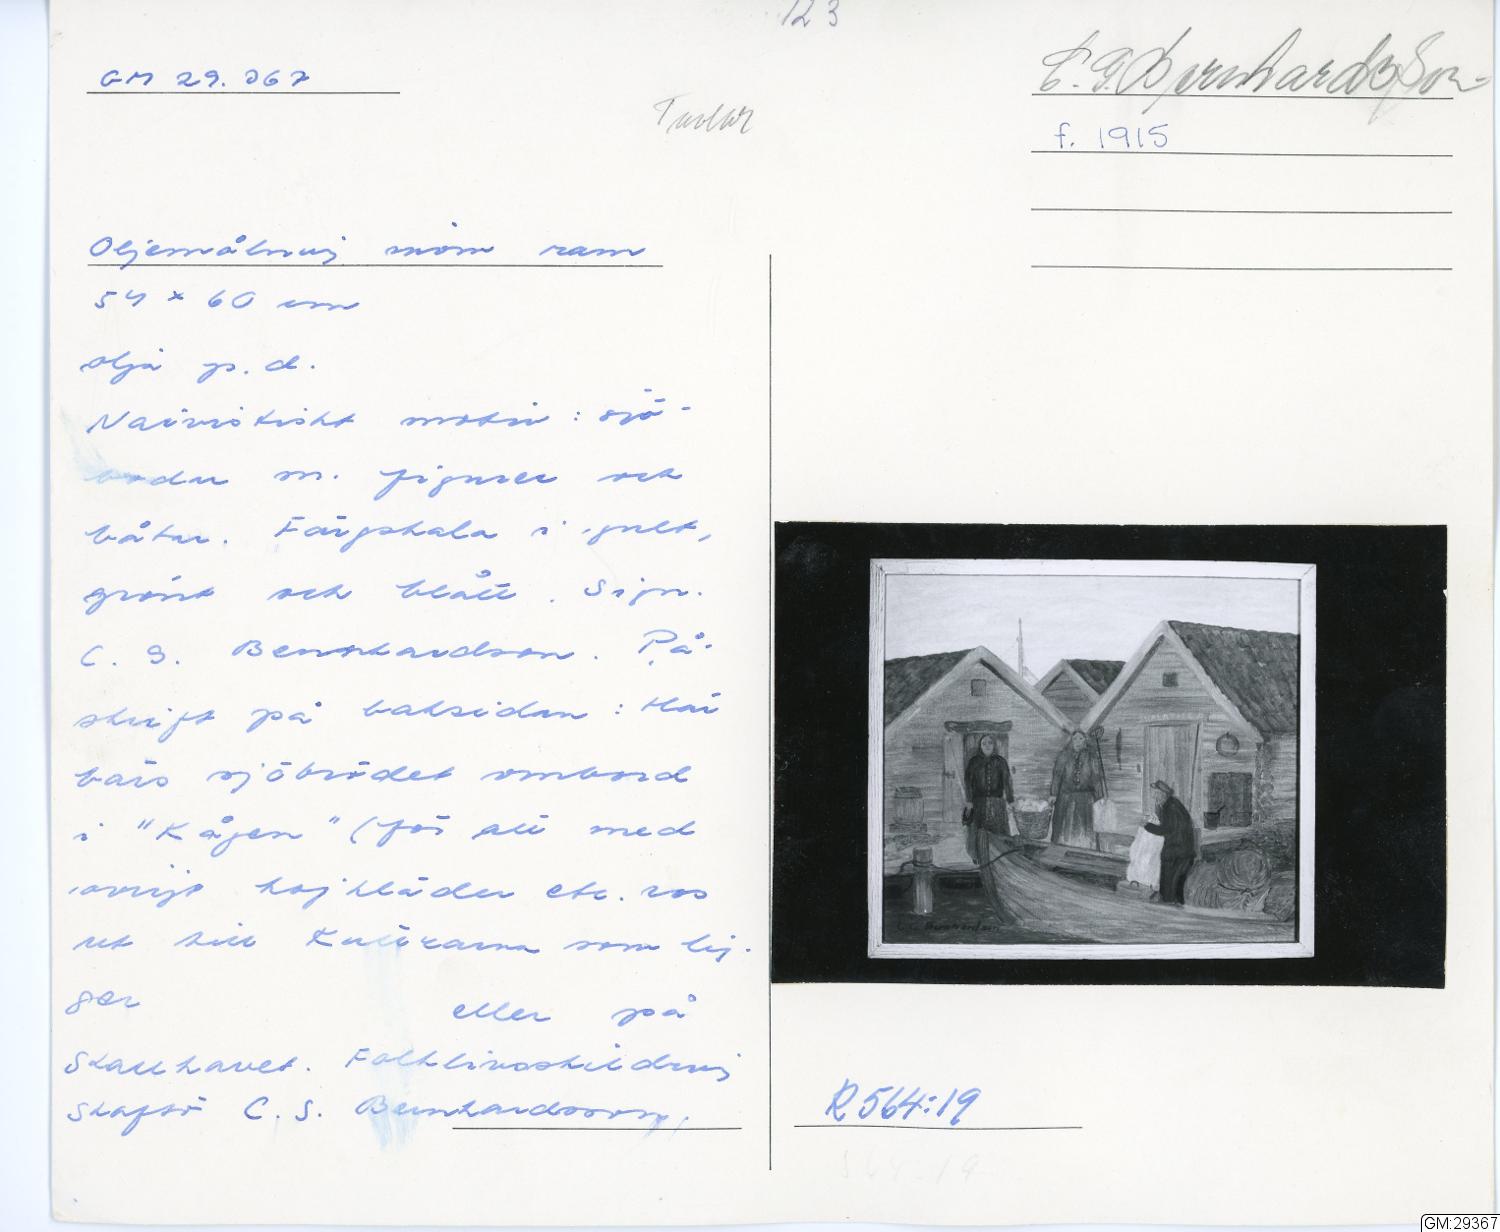 123
GM 29.367
C.G. Bernhardsson
Tavlor
f. 1915
Oljemålning inom ram
54 x 60 cm
olja p.d.
Naivistiskt motiv: sjö-
bodar m. figurer och
båtar. Färgskala i gult,
grönt och blått. Sign.
C. G. Bernhardson. På-
skrift på baksidan: Här
bärs sjöbrödet ombord
i "Kågen" (för att med
övrigt kojkläder etc. ros
ut till Kuttrarna som lig-
ger
eller på
Stallhavet. Folklivsskildring
Skaftö C. G. Bernhardsson.
C.G. Bernhardson
R 564:19
564:19
GM:29367